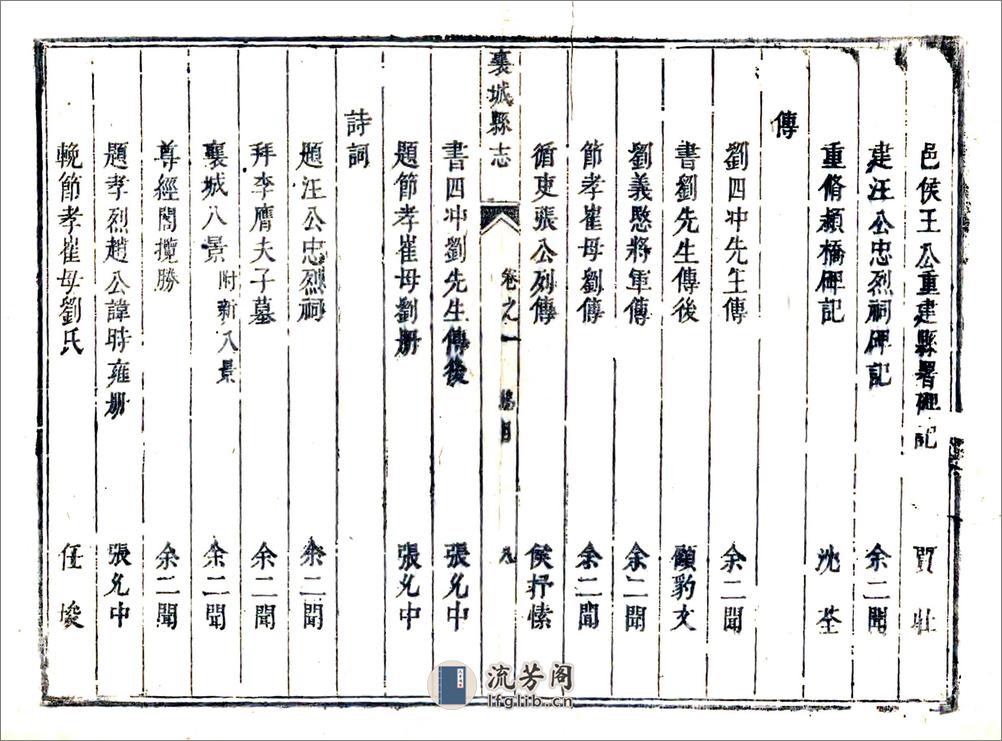 邑侯王公重建縣署碑記　賈壯
建汪公忠烈祠碑記　余二聞
重脩潁橋碑記　沈荃
傳
劉四冲先生傳　余二聞
書劉先生傳後　顧豹文
劉義愍將軍傳　余二聞
節孝崔母劉傳　余二聞
循吏張公列傳　侯抒愫
襄城縣志　卷之一　總目　九
書四冲劉先生傳後　張允中
題節孝崔母劉册　張允中
詩詞
題汪公忠烈祠　余二聞
拜李膺夫子墓　余二聞
襄城八景附新八景　余二聞
尊經閣攬勝　余二聞
題孝烈趙公諱時雍册　張允中
輓節孝崔母劉氏　任埈
流芳阁
lfglib.cn